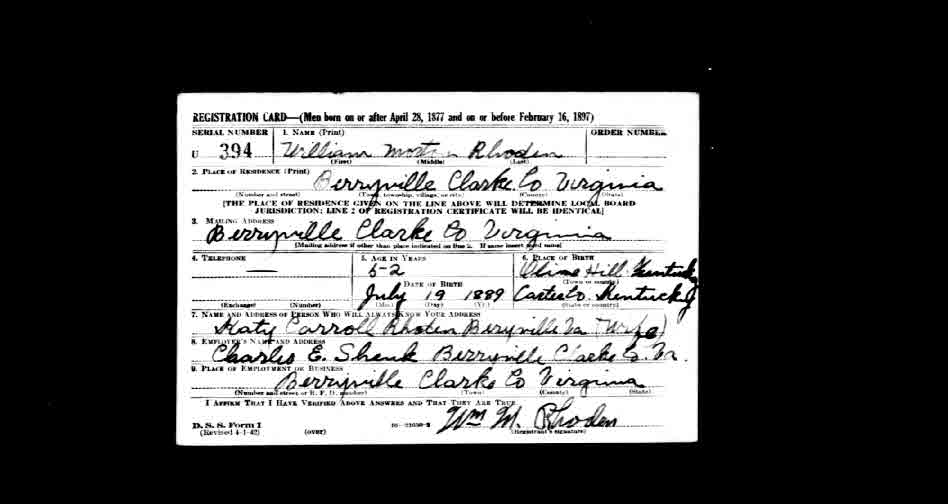 REGISTRATION CARD—(Men born on or after April 28, 1877 and on or before February 16, 1897)
SERIAL NUMBER 1. NAME (Print) ORDER NUMBER
U 394 William Morton Rhoden
(First) (Middle) (Last)
2. PLACE OF RESIDENCE (Print)
Berryville Clarke Co Virginia
(Number and street) (Town, township, village, or city) (County) (State)
[THE PLACE OF RESIDENCE GIVEN ON THE LINE ABOVE WILL DETERMINE LOCAL BOARD
JURISDICTION; LINE 2 OF REGISTRATION CERTIFICATE WILL BE IDENTICAL]
3. MAILING ADDRESS
Berryville Clarke Co Virginia
[Mailing address if other than place indicated on line 2. If same insert word same]
4. TELEPHONE 5. AGE IN YEARS 6. PLACE OF BIRTH
— 52 Olive Hill Kentucky
(Town or county)
DATE OF BIRTH
July 19 1889 Carter Co. Kentucky
(Exchange) (Number) (Mo.) (Day) (Yr.) (State or country)
7. NAME AND ADDRESS OF PERSON WHO WILL ALWAYS KNOW YOUR ADDRESS
Katy Carroll Rhoden Beryville Va (Wife)
8. EMPLOYER'S NAME AND ADDRESS
Charles E. Shenk Berryville Clarke Co. Va.
9. PLACE OF EMPLOYMENT OR BUSINESS
Berryville Clarke Co Virginia
(Number and street or R. F. D. number) (Town) (County) (State)
I AFFIRM THAT I HAVE VERIFIED ABOVE ANSWERS AND THAT THEY ARE TRUE.
Wm M. Rhoden
D. S. S. Form 1
(Revised 4-1-42) (over) (Registrant's signature)